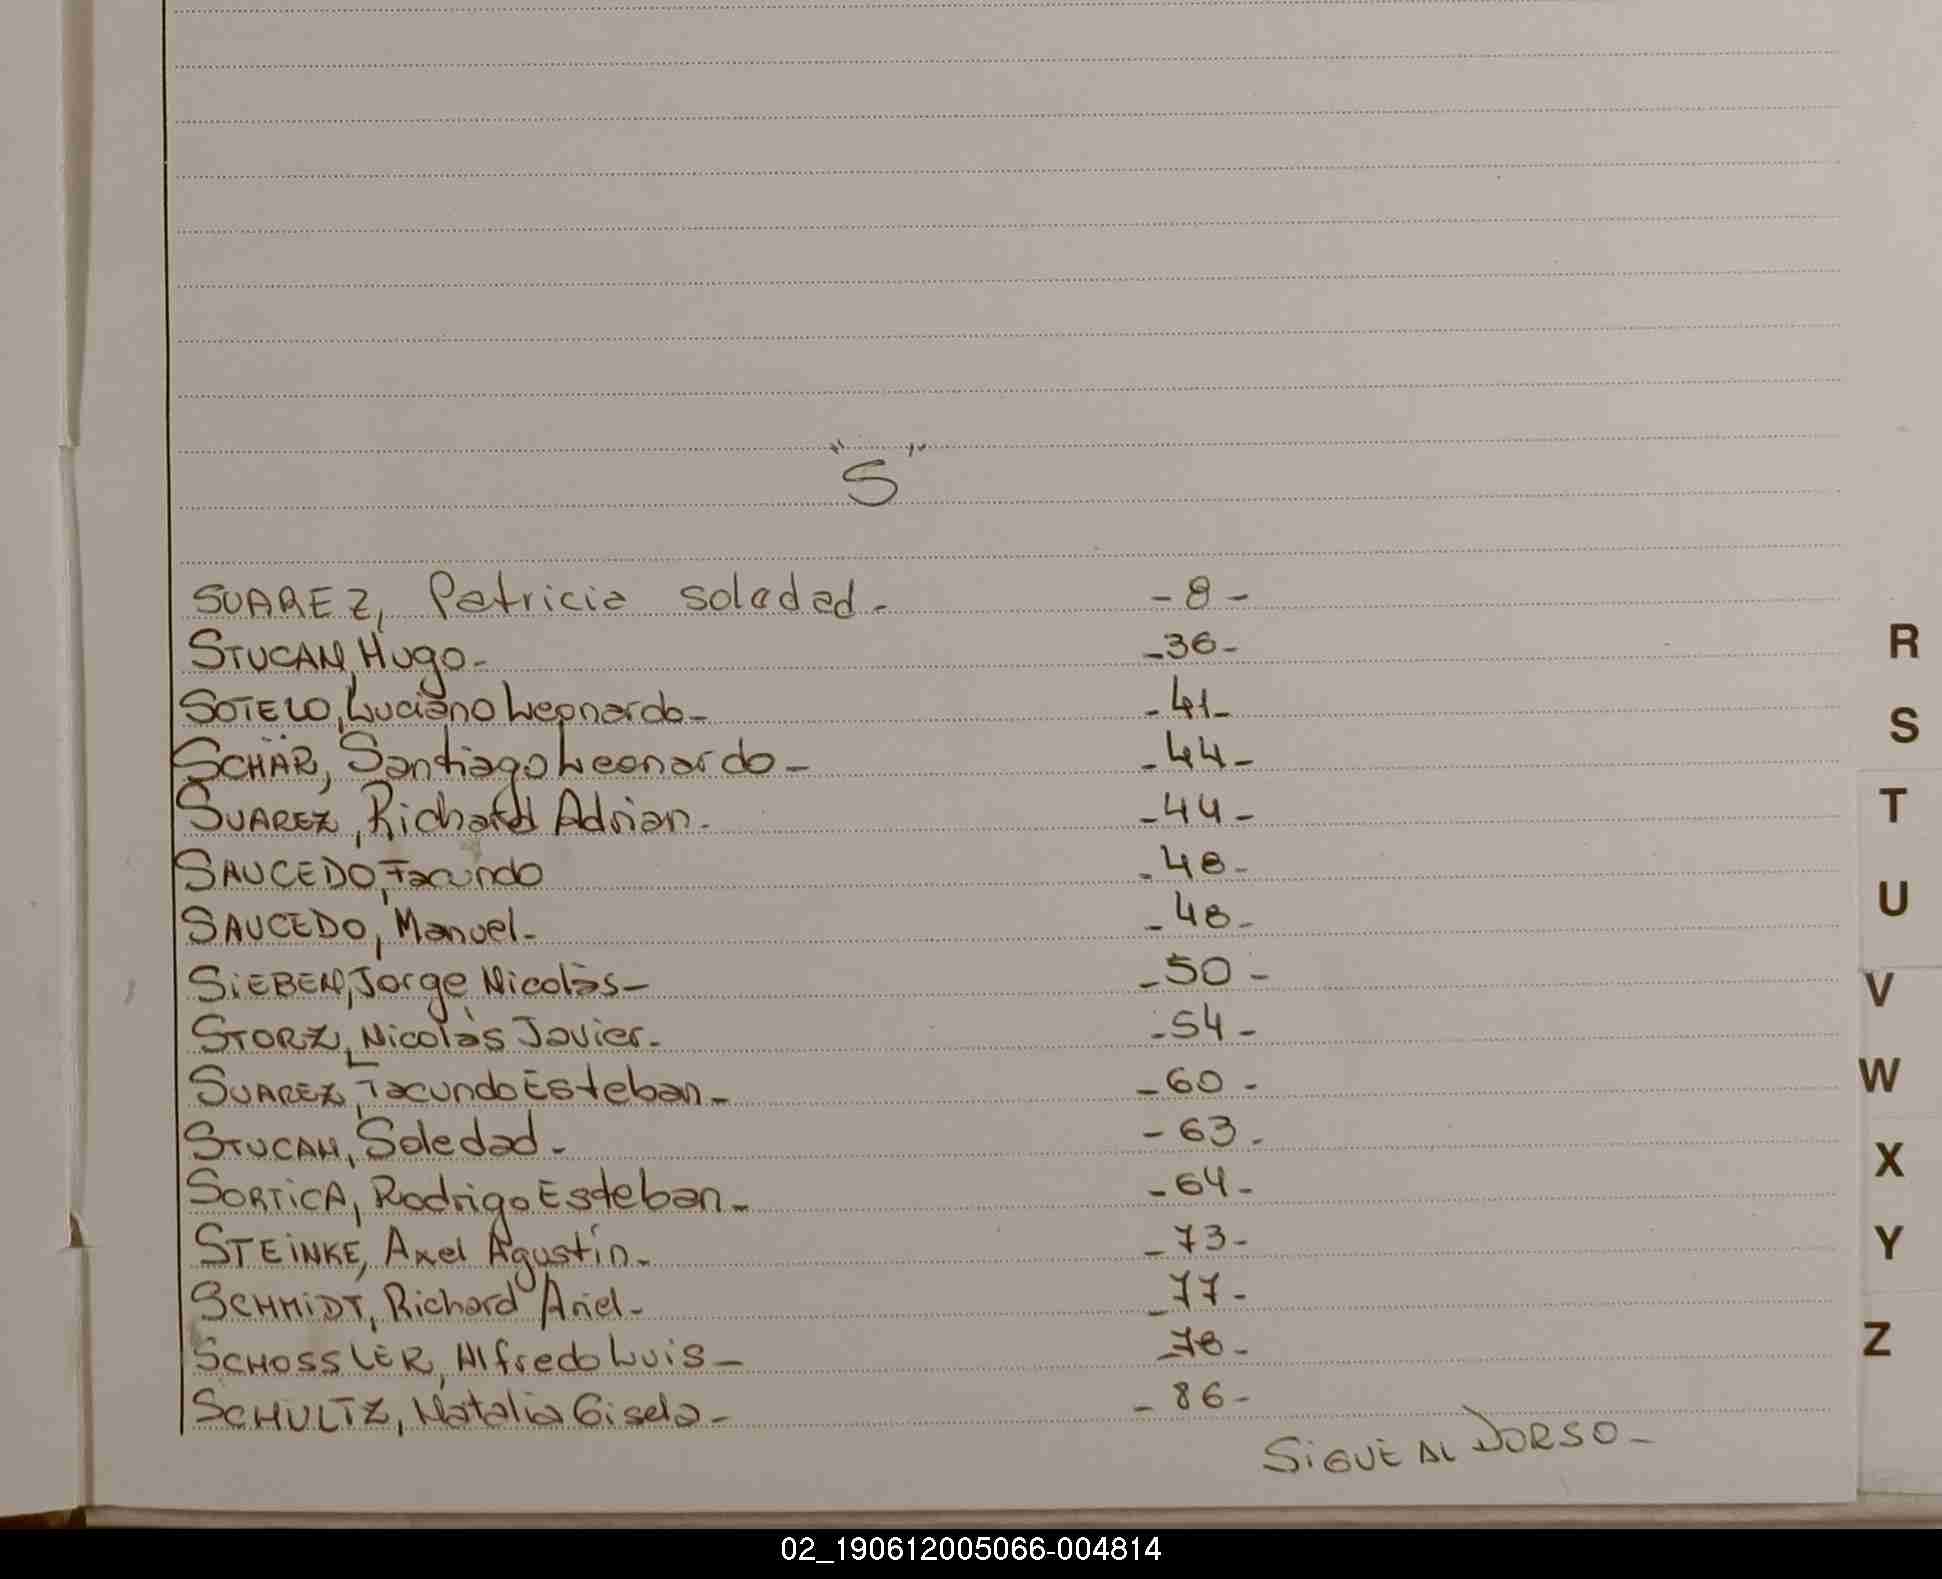 "S"
SUAREZ, Patricia Soledad- -8-
STUCAN, Hugo- -36-
SOTELO, Luciano Leonardo- -41-
SCHÄR, Santiago Leonardo- -44-
SUAREZ, Richard Adrian- -44-
SAUCEDO, Facundo -48-
SAUCEDO, Manuel- -48-
SiEBEN, Jorge Nicolàs- -50-
STORZ, Nicolàs Javier- -54-
SUAREZ, Facundo Esteban- -60-
STUCAN, Soledad- -63-
SORTiCA, Rodrigo Esteban- -64-
STEiNKE, Axel Agustín- -73-
SCHMiDT, Richard Ariel- -77-
SCHOSSLER, Alfredo Luis- -78-
SCHULTZ, Natalia Gisela- -86-
SiGUE AL DORSO-
R
S
T
U
V
W
X
Y
Z
02_190612005066-004814